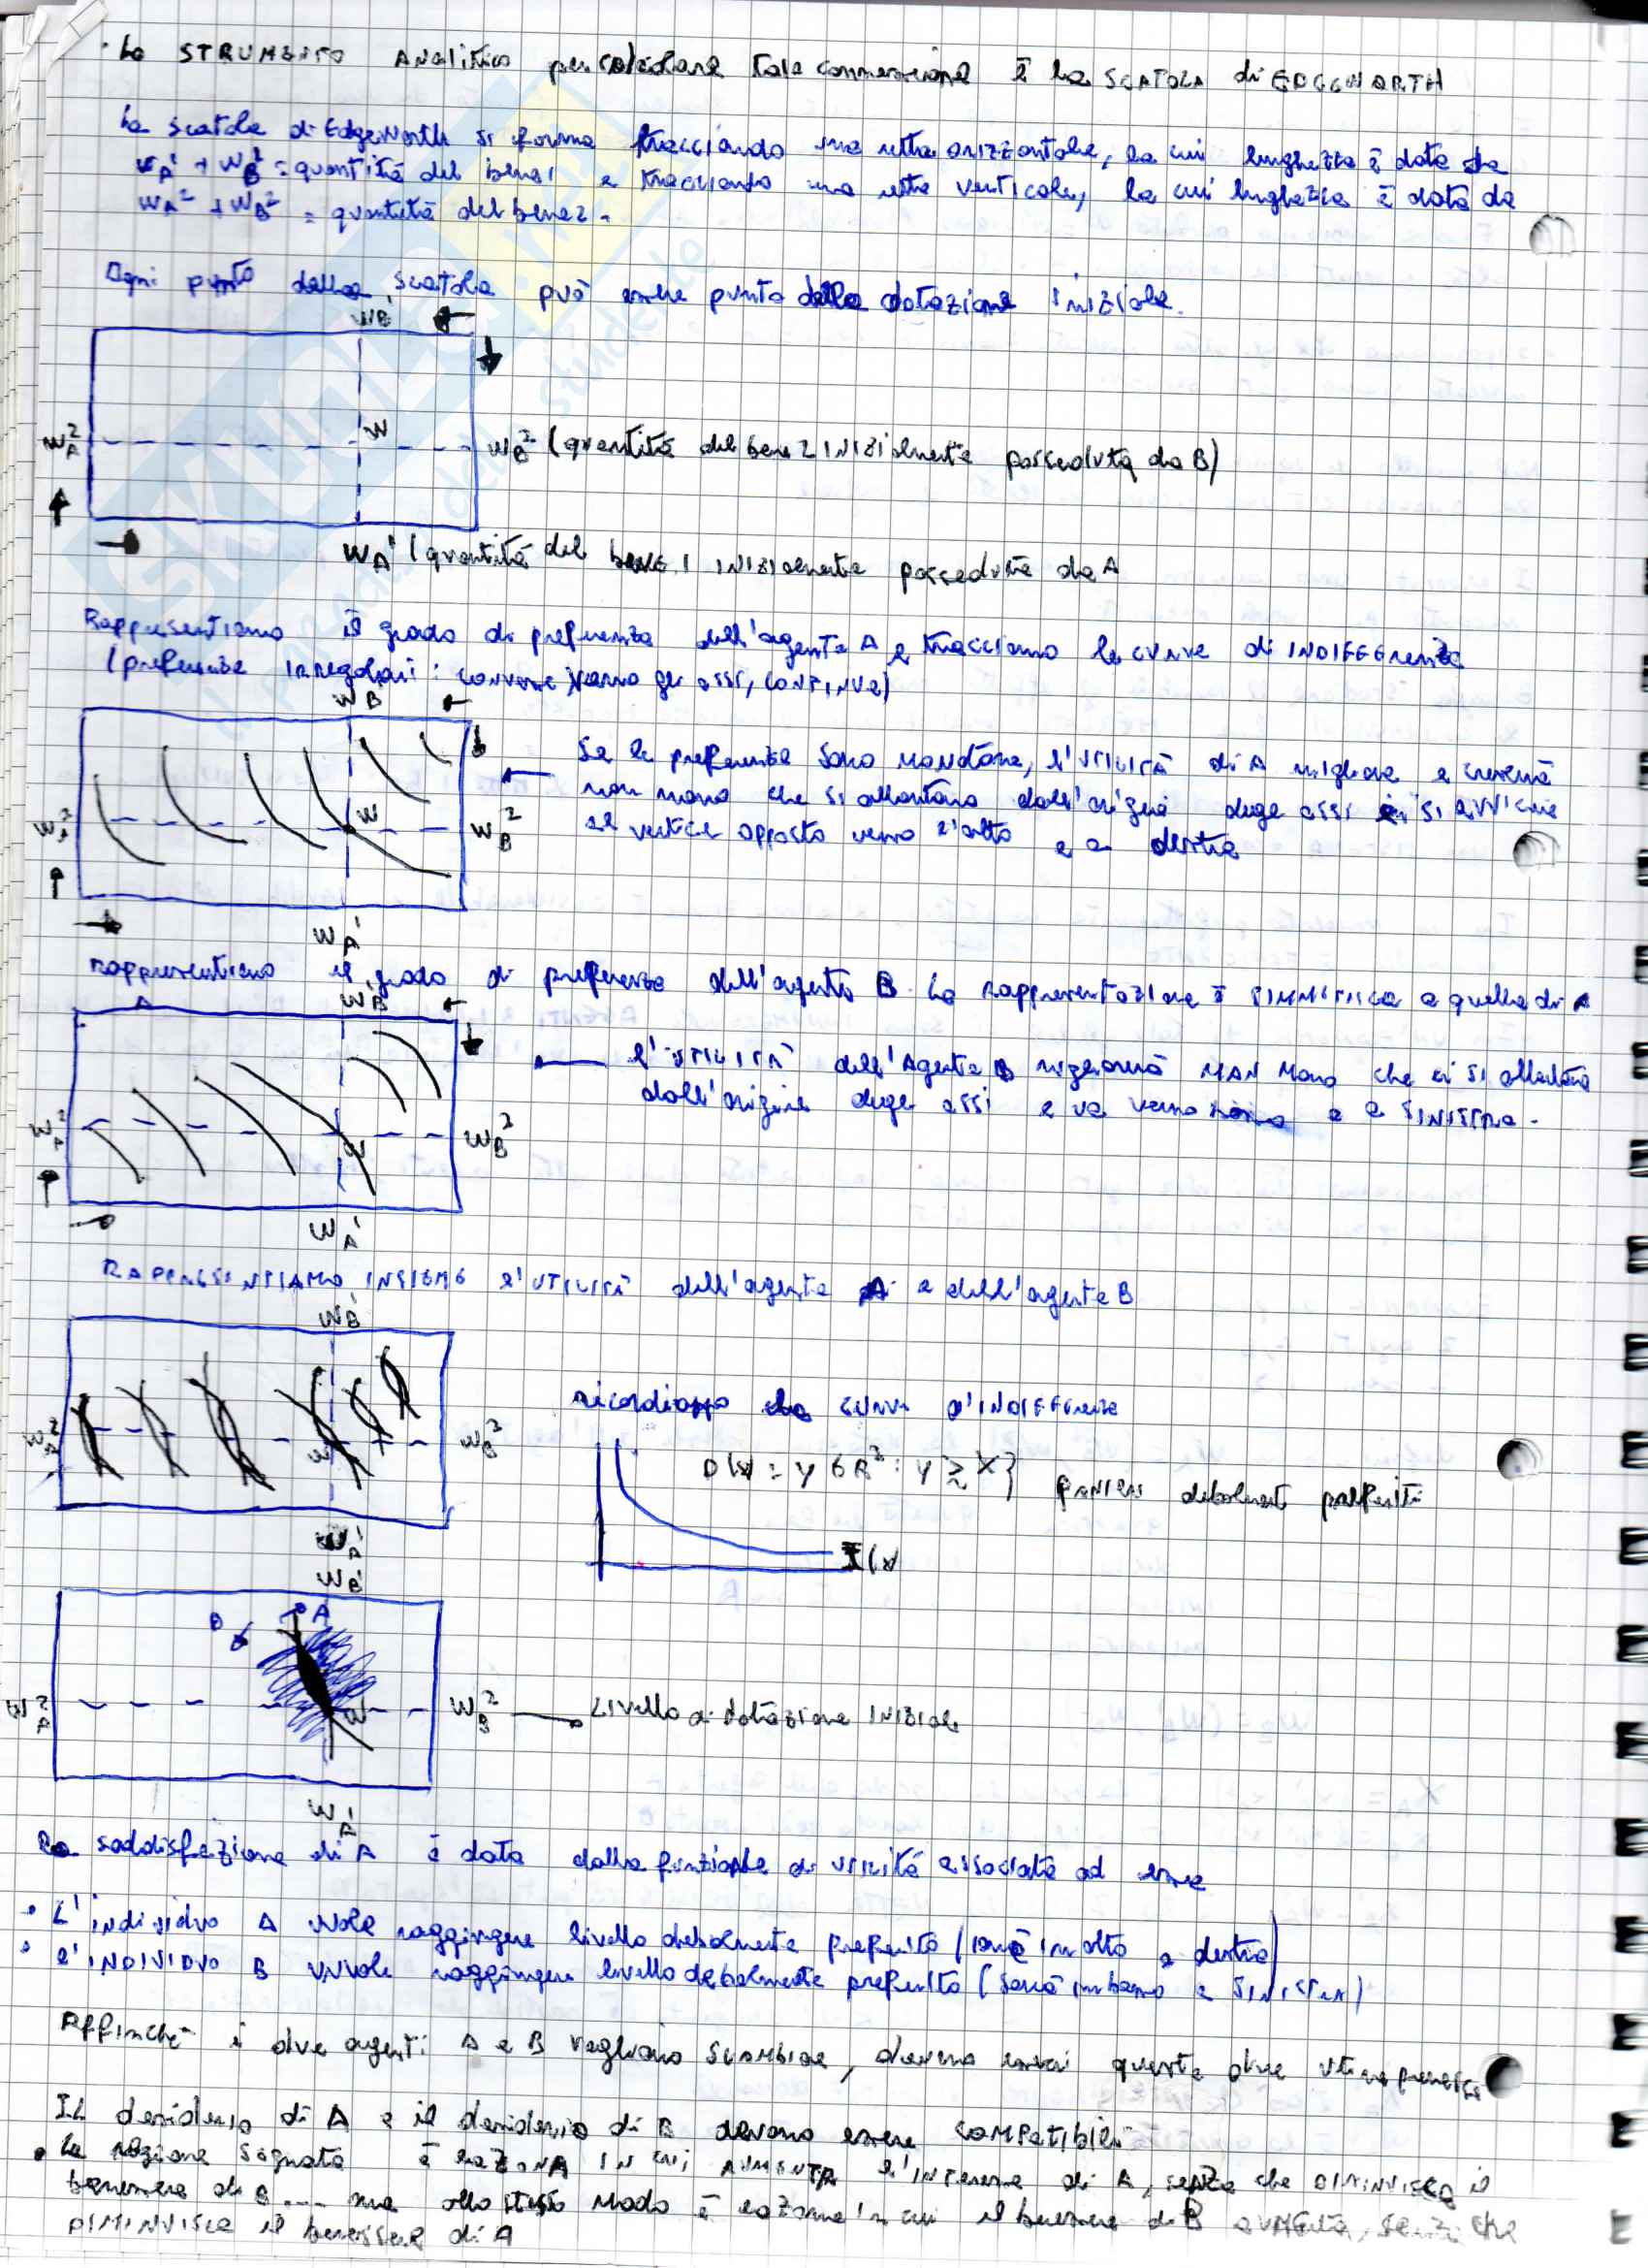 · Lo STRUMENTO ANALITICO per calcolare tale connessione è la SCATOLA di EDGEWORTH
La scatola di Edgeworth si forma tracciando una retta orizzontale, la cui lunghezza è data da
wA¹ + wB¹ = quantità del bene 1 e tracciando una retta verticale, la cui lunghezza è data da
wA² + wB² = quantità del bene 2.
Ogni punto della scatola può essere punto della dotazione iniziale.
wB¹
wA² w wB² (quantità del bene 2 INIZIALMENTE posseduta da B)
wA¹ (quantità del bene 1 INIZIALMENTE posseduta da A
Rappresentiamo il grado di preferenza dell'agente A e tracciamo le curve di INDIFFERENZA
(preferenze regolari: convesse verso gli assi, CONTINUE)
wB¹
Se le preferenze sono monotone, l'UTILITÀ di A migliora e crescerà
man mano che si allontana dall'origine degli assi e si avvicina
al vertice opposto verso l'alto e a destra
wA² w wB²
wA¹
rappresentiamo il grado di preferenza dell'agente B. La rappresentazione è SIMMETRICA a quella di A
A wB¹
l'UTILITÀ dell'Agente B migliorerà MAN MANO che ci si allontana
dall'origine degli assi e va verso e a SINISTRA.
wA² w wB²
wA¹
RAPPRESENTIAMO INSIEME l'UTILITÀ dell'agente A e dell'agente B
wB¹
ricordiamo che CURVA D'INDIFFERENZA
wA² w wB²
D(x) = y ∈ R² : y ≿ x} PANIERI debolmente preferiti
I(x)
wA¹
wB¹
A
B
wA² w wB² → Livello di dotazione INIZIALE
wA¹
La soddisfazione di A è data dalla funzione di utilità associata ad esse
• L'individuo A vuole raggiungere livello debolmente preferito (sarà in alto a destra)
• l'INDIVIDUO B vuole raggiungere livello debolmente preferito (sarà in basso a SINISTRA)
Affinché i due agenti A e B vogliano SCAMBIARE, devono esserci queste due
Il desiderio di A e il desiderio di B devono essere COMPATIBILI
• La regione segnata è la ZONA IN cui AUMENTA l'INTERESSE di A, senza che DIMINUISCA il
benessere di B .... ma allo stesso modo è la zona in cui il benessere di B aumenta, senza che
DIMINUISCA il benessere di A